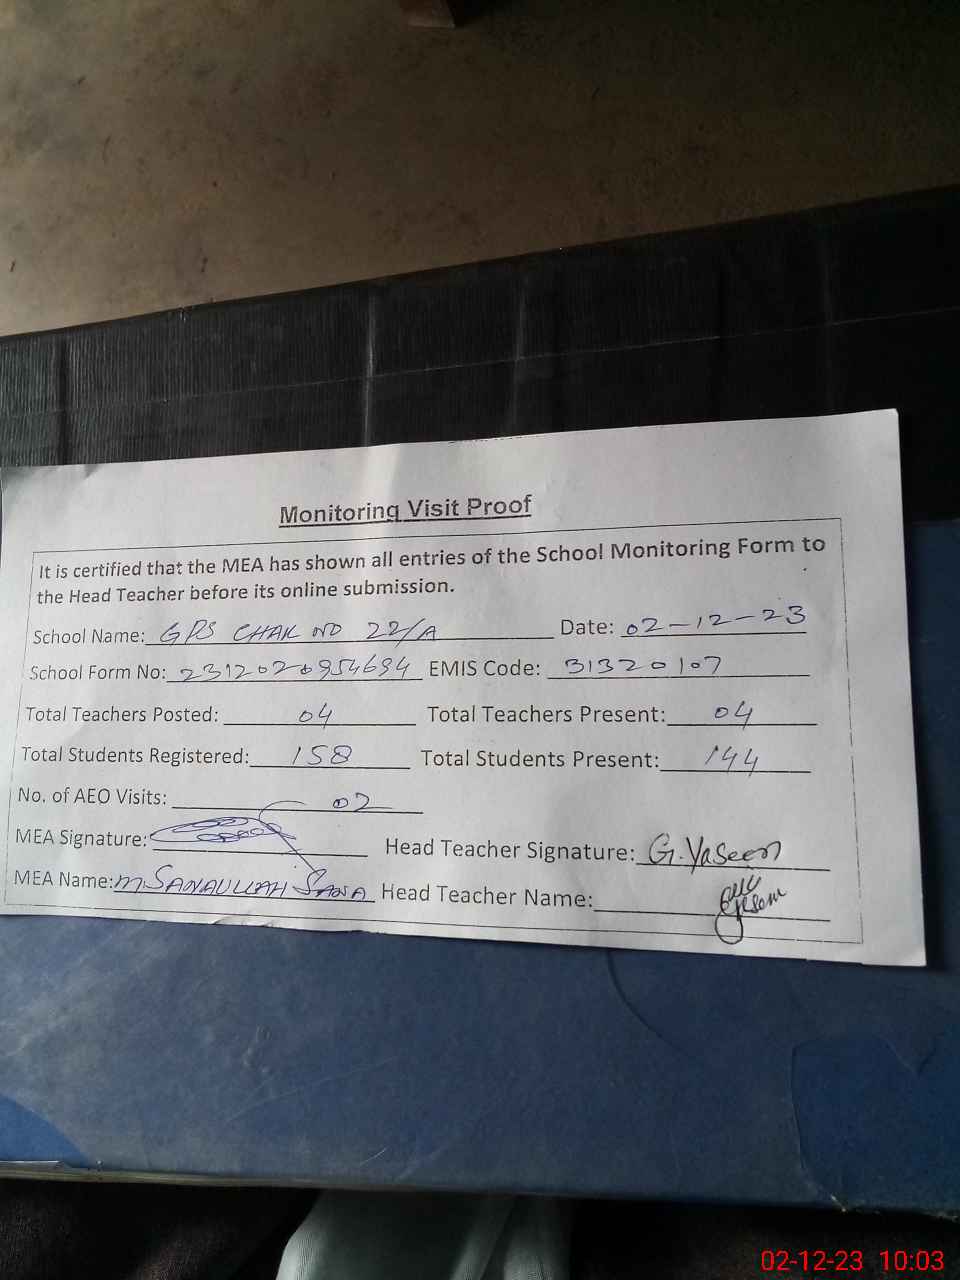 Monitoring Visit Proof
It is certified that the MEA has shown all entries of the School Monitoring Form to
the Head Teacher before its online submission.
School Name: GPS CHAK NO 22/A Date: 02-12-23
School Form No: 2312020954694 EMIS Code: 31320107
Total Teachers Posted: 04 Total Teachers Present: 04
Total Students Registered: 158 Total Students Present: 144
No. of AEO Visits: 02
MEA Signature: Head Teacher Signature: G.Yaseen
MEA Name: M.SANAULLAH SANA Head Teacher Name:
02-12-23 10:03